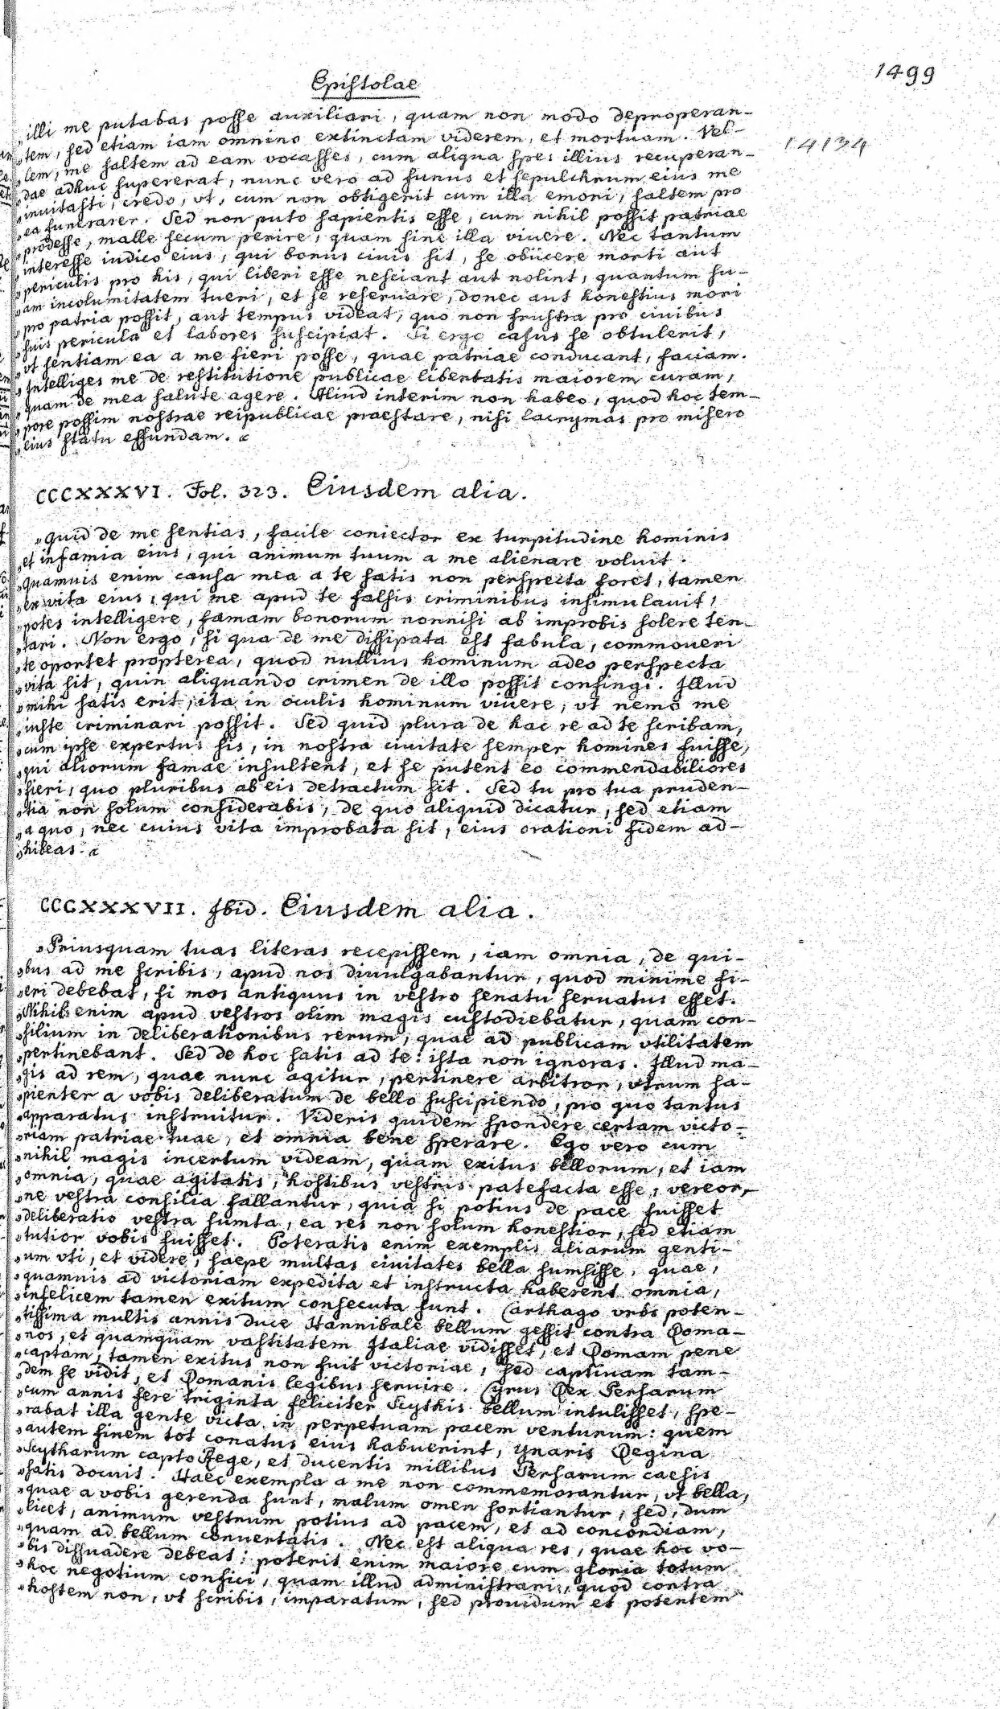 1499
Epistolae
14134
„illi me putabas posse auxiliari, quam non modo deproperan-
„tem, sed etiam iam omnino extinctam viderem, et mortuam. Vel-
„lem, me saltem ad eam vocasses, cum aliqua spes illius recuperan-
„dae adhuc supererat, nunc vero ad funus et sepulchrum eius me
„inuitasti, credo, vt, cum non obtigerit cum illa emori, saltem pro
„ea funerarer. Sed non puto sapientis esse, cum nihil possit patriae
„prodesse, malle secum perire, quam sine illa viuere. Nec tantum
„interesse iudico eius, qui bonus ciuis sit, se obiicere morti aut
„periculis pro his, qui liberi esse nesciant aut nolint, quantum su-
„am incolumitatem tueri, et se reseruare, donec aut honestius mori
„pro patria possit, aut tempus videat, quo non frustra pro ciuibus
„suis pericula et labores suscipiat. Si ergo casus se obtulerit,
„vt sentiam ea a me fieri posse, quae patriae conducant, faciam.
„Intelliges me de restitutione publicae libertatis maiorem curam,
„quam de mea salute agere. Aliud interim non habeo, quod hoc tem-
„pore possim nostrae reipublicae praestare, nisi lacrymas pro misero
„eius statu effundam. “
CCCXXXVI. Fol. 323. Eiusdem alia.
„quid de me sentias, facile coniector ex turpitudine hominis
„et infamia eius, qui animum tuum a me alienare voluit.
„quamuis enim causa mea a te satis non perspecta foret, tamen
„ex vita eius, qui me apud te falsis criminibus insimulauit,
„potes intelligere, famam bonorum nonnisi ab improbis solere ten-
„tari. Non ergo, si qua de me dissipata est fabula, commoueri
„te oportet propterea, quod nullius hominum adeo perspecta
„vita sit, quin aliquando crimen de illo possit confingi. Illud
„mihi satis erit, ita in oculis hominum viuere, vt nemo me
„iuste criminari possit. Sed quid plura de hac re ad te scribam,
„cum ipse expertus sis, in nostra ciuitate semper homines fuisse,
„qui aliorum famae insultent, et se putent eo commendabiliores
„fieri, quo pluribus ab eis detractum sit. Sed tu pro tua pruden-
„tia non solum considerabis, de quo aliquid dicatur, sed etiam
„a quo, nec cuius vita improbata sit, eius orationi fidem ad-
„hibeas. “
CCCXXXVII. Ibid. Eiusdem alia.
„Priusquam tuas literas recepissem, iam omnia, de qui-
„bus ad me scribis, apud nos diuulgabantur, quod minime fi-
„eri debebat, si mos antiquus in vestro senatu seruatus esset.
„Nihil enim apud vestros olim magis custodiebatur, quam con-
„silium in deliberationibus rerum, quae ad publicam vtilitatem
„pertinebant. Sed de hoc satis ad te: ista non ignoras. Illud ma-
„gis ad rem, quae nunc agitur, pertinere arbitror, vtrum sa-
„pienter a vobis deliberatum de bello suscipiendo, pro quo tantus
„apparatus instruitur. Videris quidem spondere certam victo-
„riam patriae tuae, et omnia bene sperare. Ego vero cum
„nihil magis incertum videam, quam exitus bellorum, et iam
„omnia, quae agitatis, hostibus vestris patefacta esse, vereor,
„ne vestra consilia fallantur, quia si potius de pace fuisset
„deliberatio vestra sumta, ea res non solum honestior, sed etiam
„tutior vobis fuisset. Poteratis enim exemplis aliarum genti-
„um vti, et videre, saepe multas ciuitates bella sumsisse, quae,
„quamuis ad victoriam expedita et instructa haberent omnia,
„infelicem tamen exitum consecuta sunt. Carthago vrbs poten-
„tissima multis annis duce Hannibale bellum gessit contra Roma-
„nos, et quamquam vastitatem Italiae vidisset, et Romam pene
„captam, tamen exitus non fuit victoriae, sed captiuam tam-
„dem se vidit, et Romanis legibus seruire. Cyrus Rex Persarum
„cum annis fere triginta feliciter Scythis bellum intulisset, spe-
„rabat illa gente victa in perpetuam pacem venturum: quem
„autem finem tot conatus eius habuerint, ynaris Regina
„Scytharum capto Rege, et ducentis millibus Persarum caesis
„satis docuit. Haec exempla a me non commemorantur, vt bella,
„quae a vobis gerenda sunt, malum omen sortiantur, sed, dum
„licet, animum vestrum potius ad pacem, et ad concordiam,
„quam ad bellum conuertatis. Nec est aliqua res, quae hoc vo-
„bis dissuadere debeat: poterit enim maiore cum gloria totum
„hoc negotium confici, quam illud administrari, quod contra
„hostem non, vt scribis, imparatum, sed prouidum et potentem